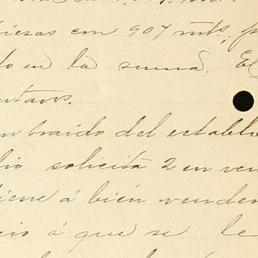 piezas con 907 mts;
do en la suma. El
entavos.
traido del estable
solicita 2 en ven
tiene á bién vender
cio á que se le